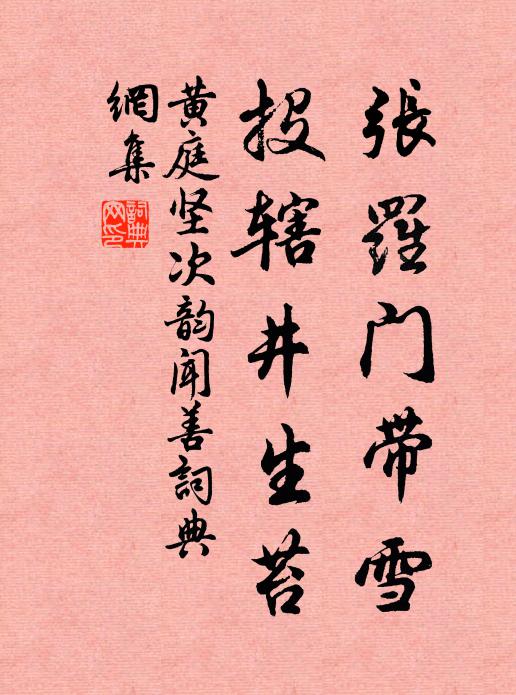 張羅门带雪
投辖井生苔
黄庭坚次韵闻善詞典
網集
詞典
网印